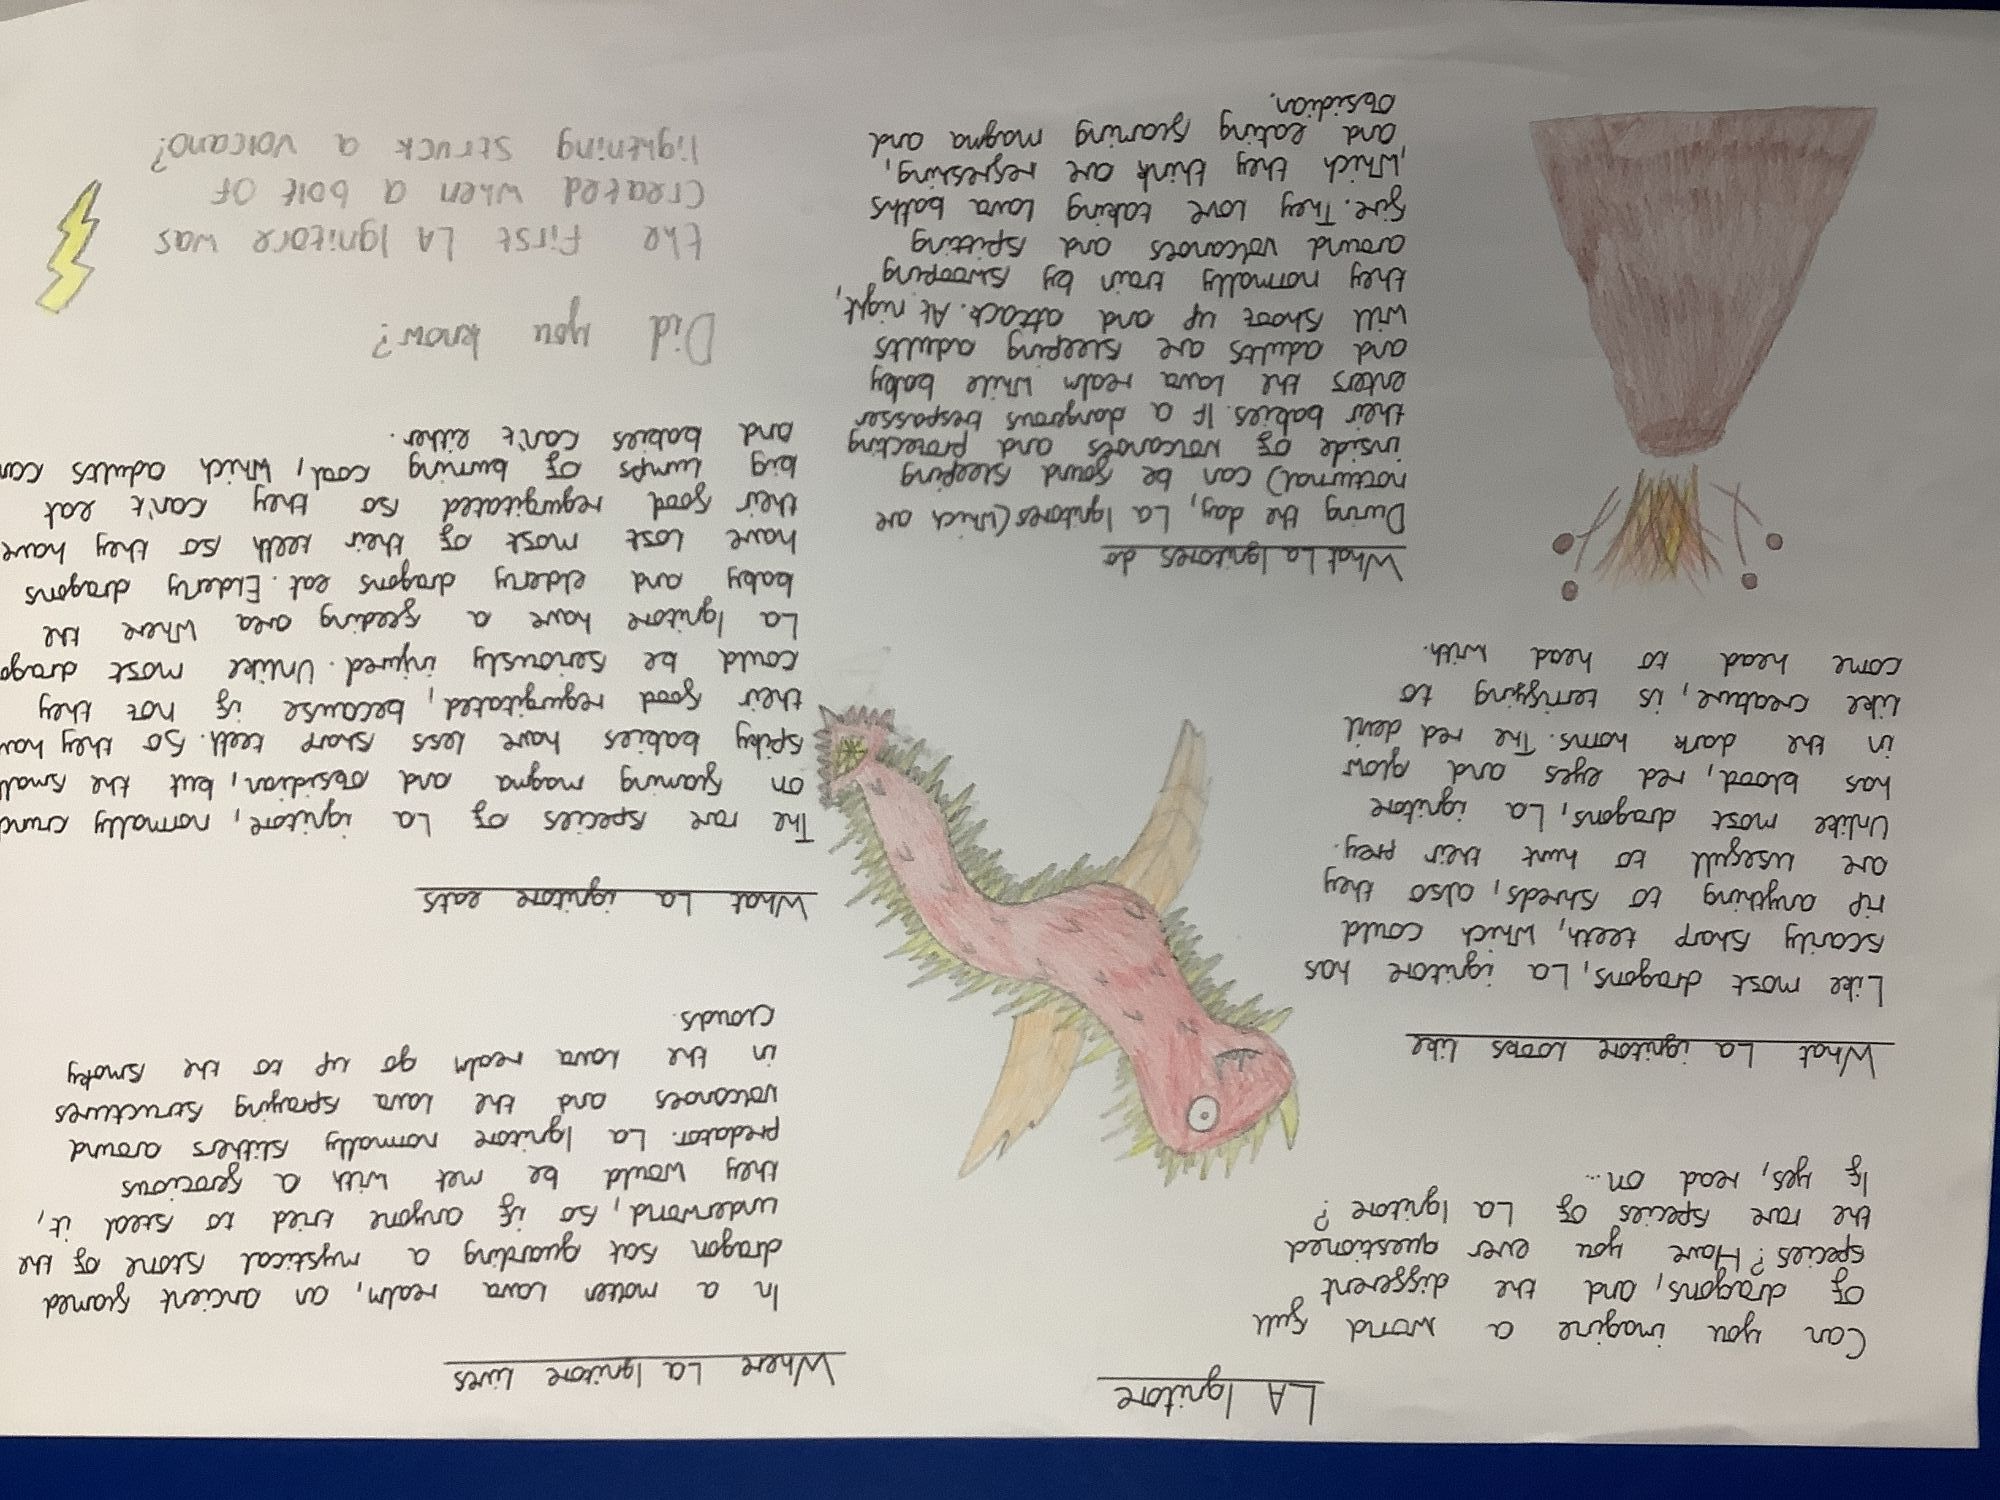 LA Ignitore
Can you imagine a world full
of dragons, and the different
species? Have you ever questioned
the rare species of La Ignitore?
If yes, read on...
What La ignitore looks like
Like most dragons, La ignitore has
scarily sharp teeth, which could
rip anything to shreds, also they
are usefull to hunt their prey.
Unlike most dragons, La ignitore
has blood, red eyes and glow
in the dark horns. The red devil
like creature, is terrifying to
come head to head with.
What La Ignitores do
During the day, La Ignitores (which are
nocturnal) can be found sleeping
inside of volcanoes and protecting
their babies. If a dangerous trespasser
enters the lava realm while baby
and adults are sleeping adults
will shoot up and attack. At night,
they normally train by swooping
around volcanoes and spitting
fire. They love taking lava baths
, which they think are refreshing,
and eating flaming magma and
obsidian.
Where La Ignitore lives
In a molten lava realm, an ancient flamed
dragon sat guarding a mystical stone of the
underworld, so if anyone tried to steal it,
they would be met with a ferocious
predator. La Ignitore normally slithers around
volcanoes and the lava spraying structures
in the lava realm go up to the smoky
clouds.
What La ignitore eats
The rare species of La ignitore, normally
on flaming magma and obsidian, but the small
spiky babies have less sharp teeth. So they
their food regurgitated, because if not they
could be seriously injured. Unlike most
La Ignitore have a feeding area where the
baby and elderly dragons eat. Elderly dragons
have lost most of their teeth so they have
their food regurgitated so they can't eat
big lumps of burning coal, which adults can
and babies can't either.
Did you know?
the first LA Ignitore was
created when a bolt of
lightning struck a volcano?